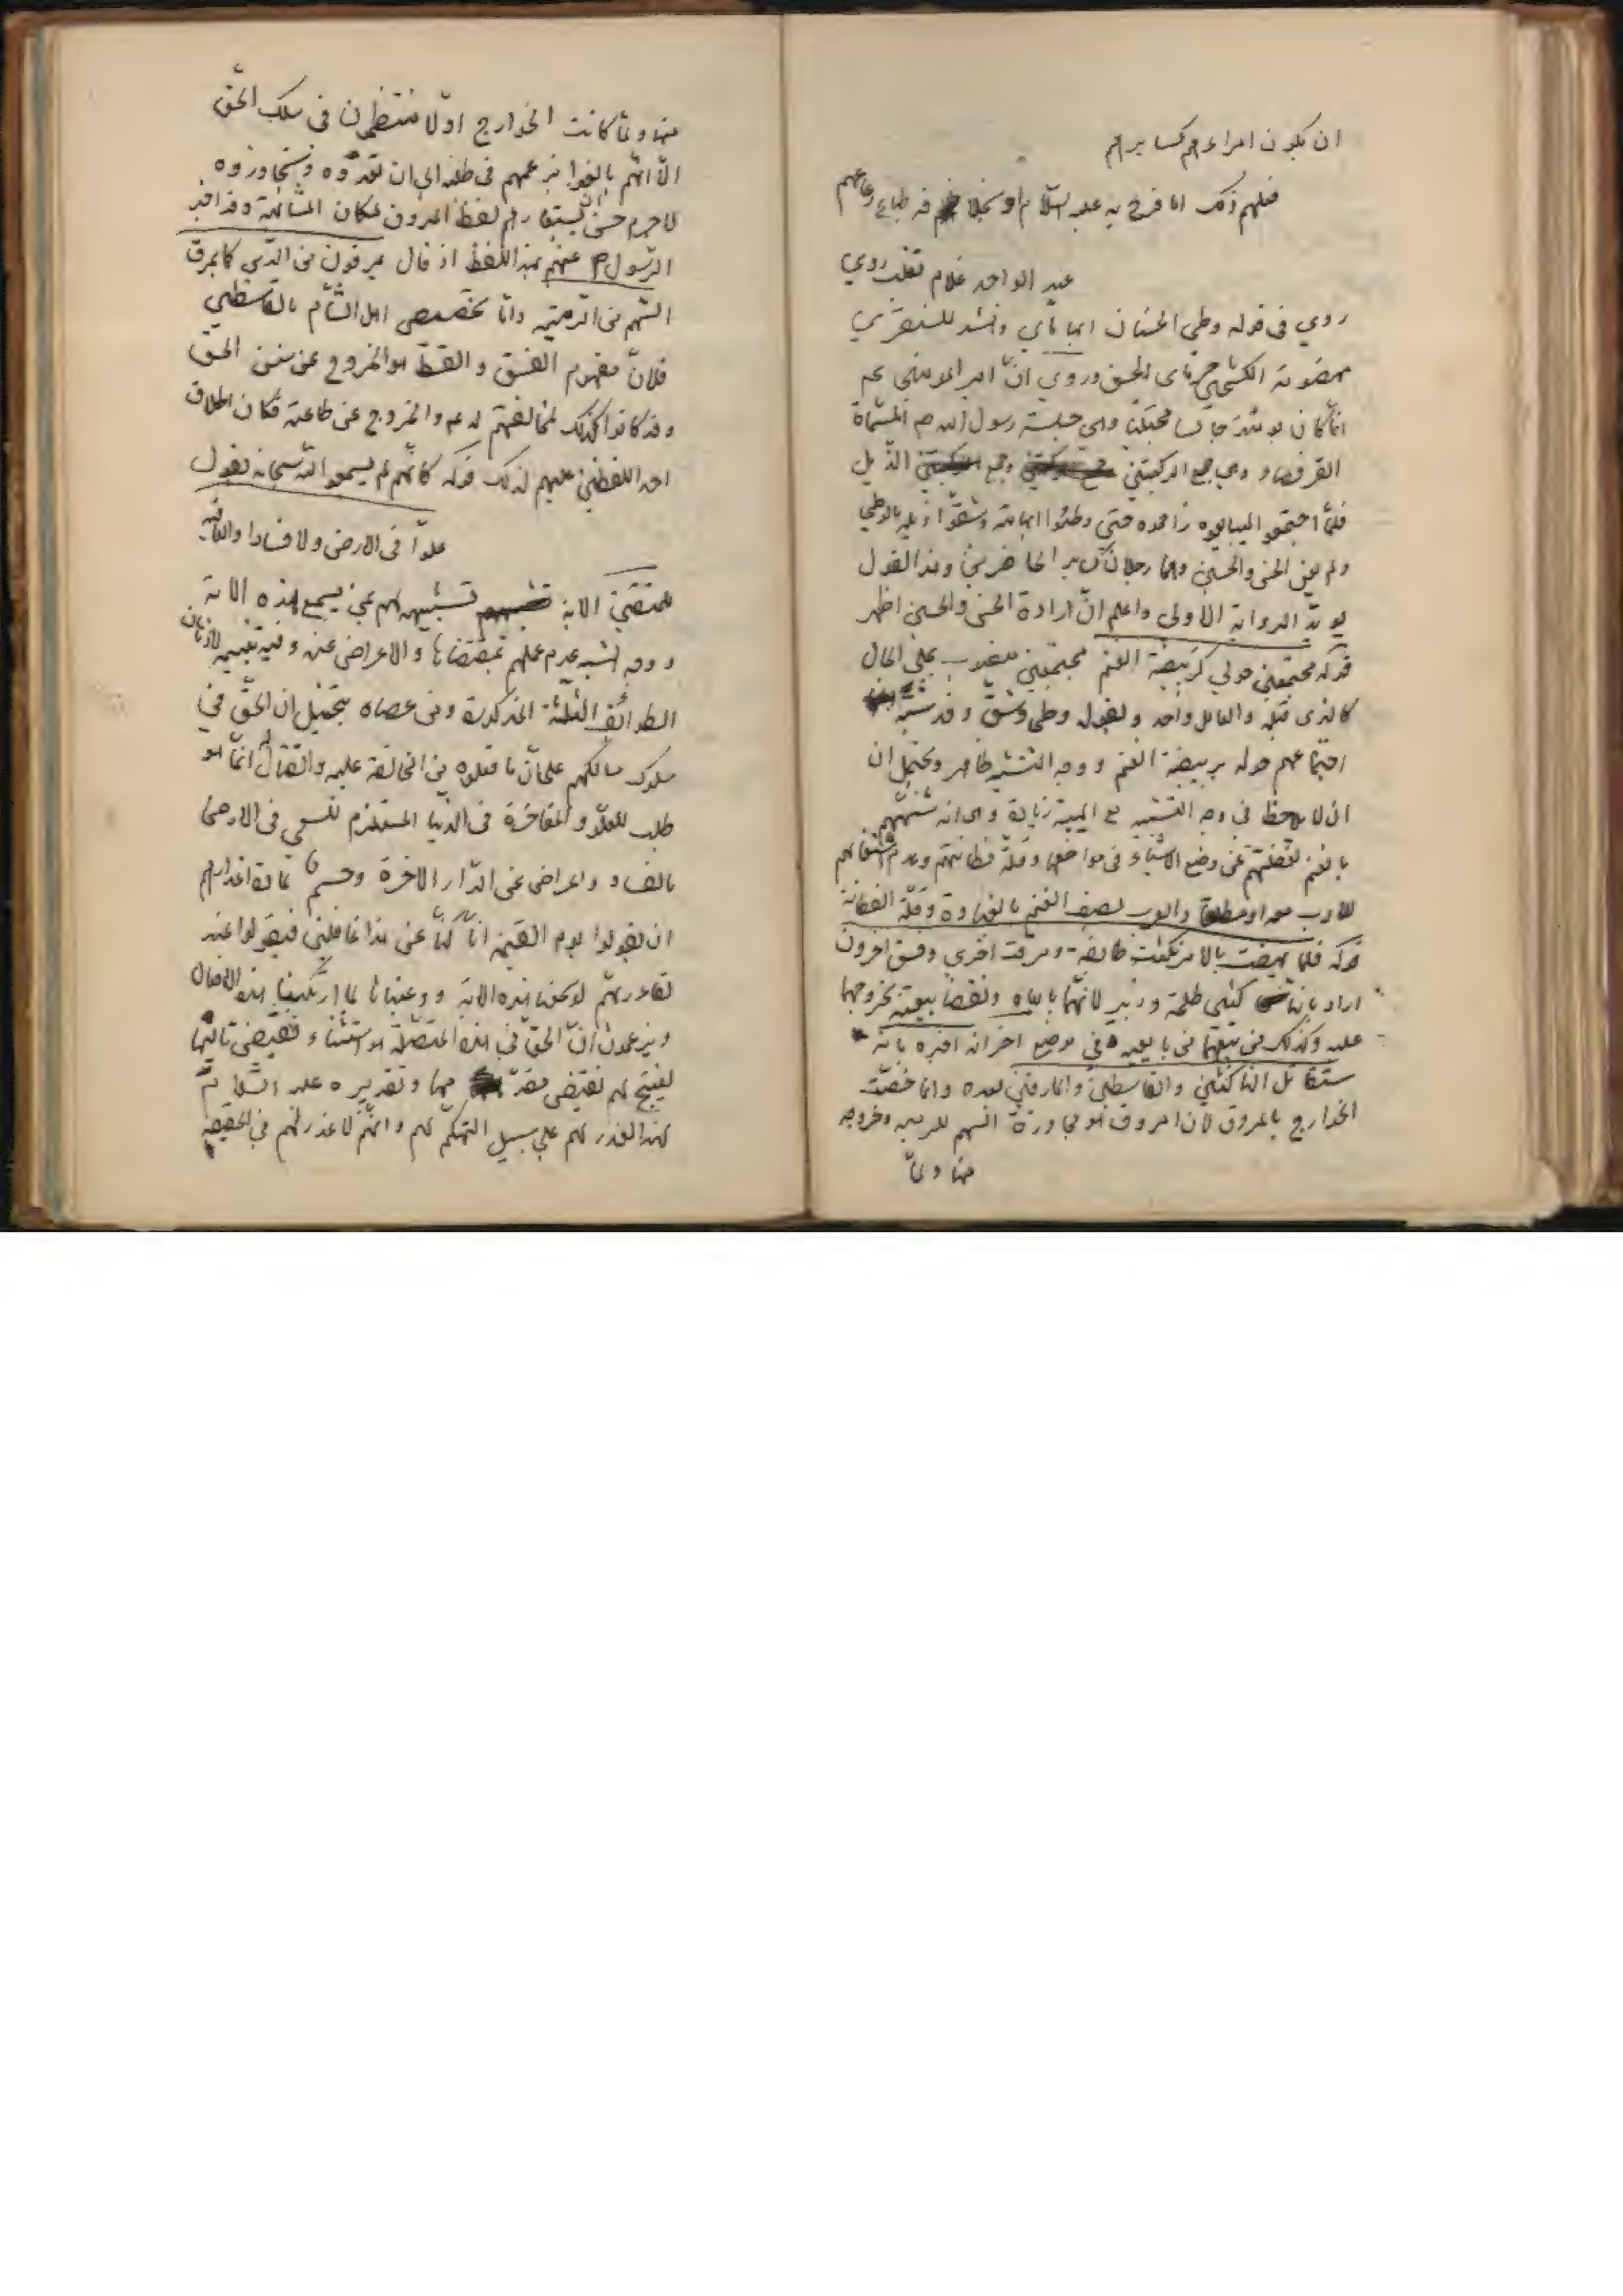 ان يكون امراءهم كسايرهم
فعلهم ذلك اما فرح به عليه السلام او طباع رعاعهم
عبد الواحد غلام ثعلب روي
روي في قوله وطي الحسنان ابهاماي وانشد للشنفري
مهضومة الكشحين الحسن وروي ان امير المومنين عم
انما كان يومئذ جالسا محتبيا وهي جلسة رسول الله ص المسماة
القرفصاء وهي جمع الركبتين وجمع الذيل
فلما اجتمعوا ليبايعوه زاحموه حتى وطئوا ابهاميه وشقوا ذيله بالوطي
ولم يعن الحسن والحسين وهما رجلان كساير الحاضرين وهذا القول
يويد الرواية الاولى واعلم ان ارادة الحسن والحسين اظهر
قوله مجتمعين حولي كربيضة الغنم مجتمعين منصوب على الحال
كالذي قبله والعامل واحد او لقوله وطي وشق وقد شبه
اجتماعهم حوله بربيضة الغنم ووجه التشبيه ظاهر ويحتمل ان
ان لاحظ في وجه التشبيه مع الهيئة زيادة وهي انه شبههم
بالغنم لغفلتهم عن وضع الاشياء في مواضعها وقلة فطانتهم وعدم استعمالهم
للادب معه او مطلقا والعرب تصف الغنم بالغباوة وقلة الفطانة
قوله فلما نهضت بالامر نكثت طائفة ومرقت اخرى وفسق اخرون
اراد بالناكثين طلحة وزبير لانهما بايعاه ونقضا بيعته بخروجهما
عليه وكذلك من تبعهما ممن بايعه في موضع اخر انه اخبره بانه
ستقاتل الناكثين والقاسطين والمارقين بعده وانما خصت
الخوارج بالمروق لان المروق هو مجاوزة السهم للرمية وخروجه
منها ولما
منها ولما كانت الخوارج اولا منتظمين في سلك الحق
الا انهم بالغوا بزعمهم في طلبه الى ان تعدوه وتجاوزوه
لا جرم حسن ان يستعار لهم لفظ المروق لمكان المشابهة وقد اخبر
الرسول ص عنهم بهذا اللفظ اذ قال يمرقون من الدين كما يمرق
السهم من الرمية واما تخصيص اهل الشام بالقاسطين
فلان مفهوم الفسق والقسط هو الخروج عن سنن الحق
وقد كانوا كذلك لمخالفتهم له عم والخروج عن طاعته فكان اطلاق
احد اللفظين عليهم لذلك قوله كانهم لم يسمعوا الله سبحانه يقول
علوا في الارض ولا فسادا والعاقبة
للمتقين الاية تشبيه لهم بمن لم يسمع هذه الاية
ووجه الشبه عدم عملهم بمقتضاها والاعراض عنه وفيه تنبيه لاذهان
الطوائف الثلثة المذكورة ومن عصاه يتخيل ان الحق في
سلوك مسالكهم على ان ما فعلوه من المخالفة عليه والقتال له انما هو
طلب للعلو والمفاخرة في الدنيا المستلزم للسعي في الارض
بالفساد واعراض عن الدار الاخرة وحسم لمادة اعذارهم
ان يقولوا يوم القيمة انا كنا عن هذا غافلين فيقولوا عند
لو سمعنا هذه الاية ووعيناها لما ارتكبنا هذه الافعال
ويزعمون ان الحق في هذه المتصلة هو استثناء نقيض تاليها
لينتج لهم نقيض مقدمها وتقديره عليه السلام
لهذا العذر لهم على سبيل التهكم لهم وانهم لا عذر لهم في الحقيقة